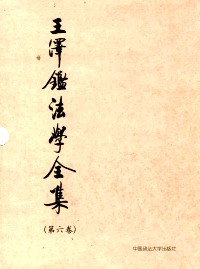 王澤鑑法學全集
(第六卷)
中国政法大学出版社